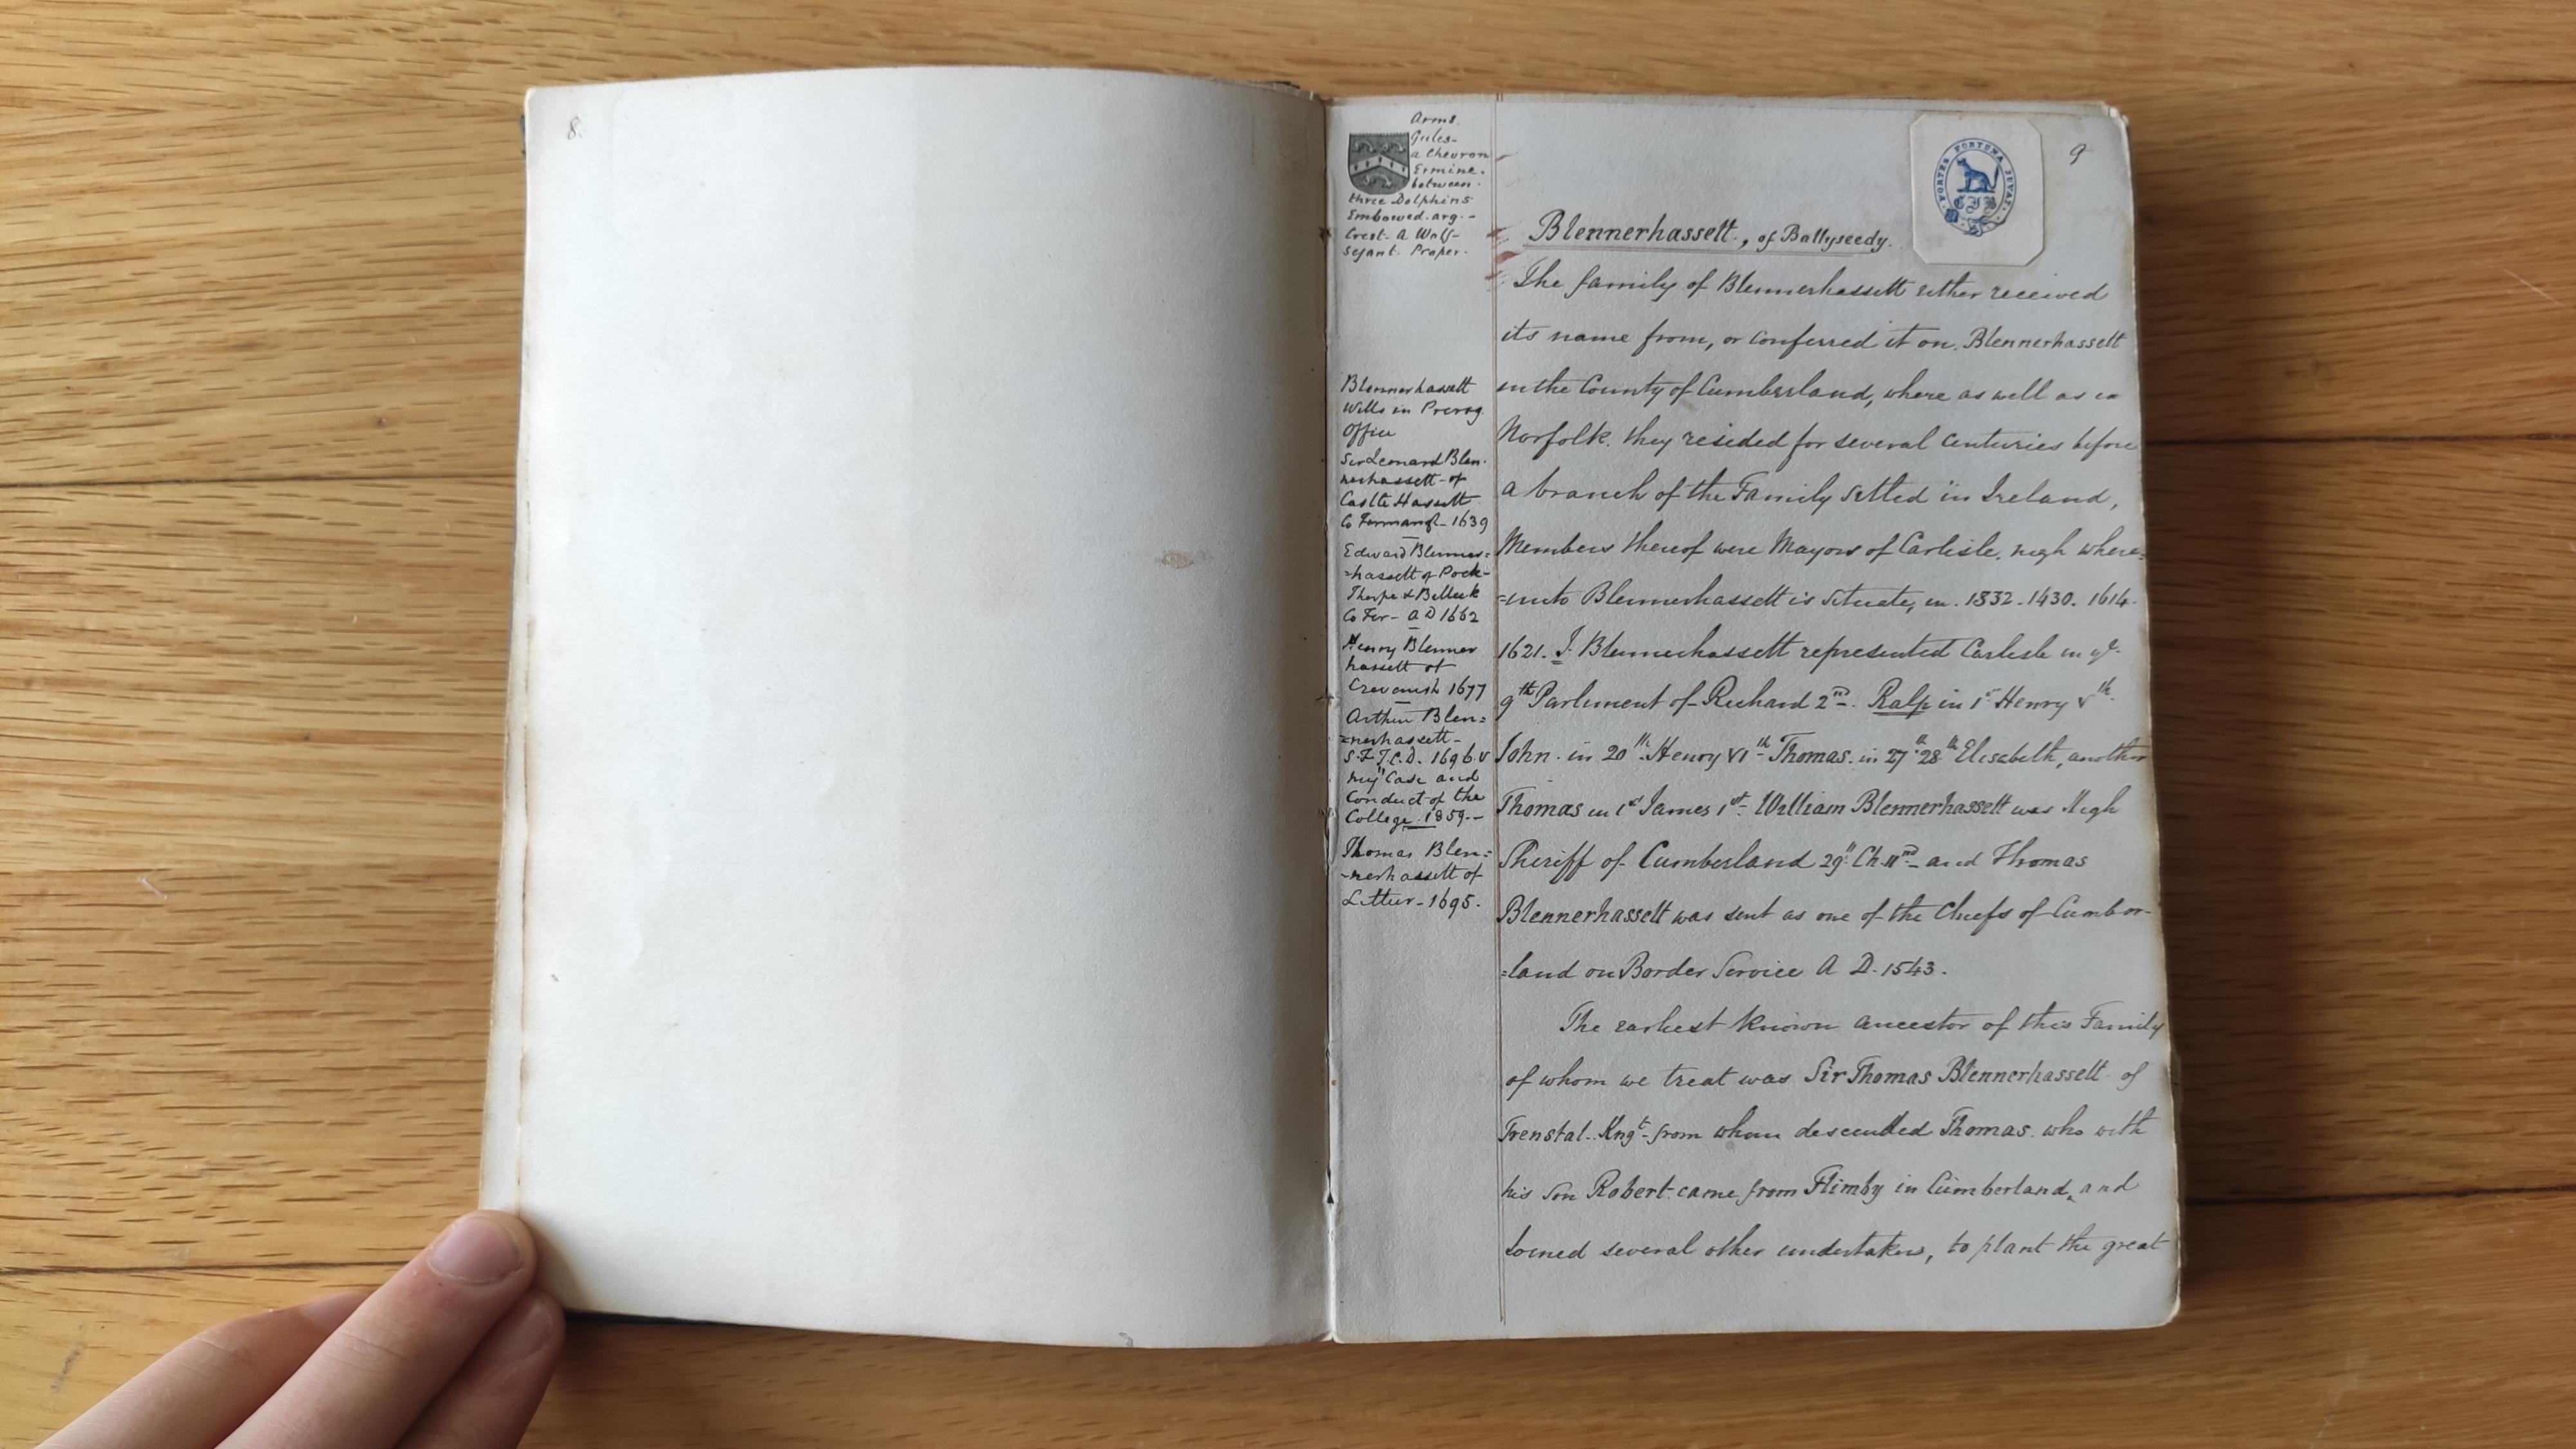 8.
Arms.
Gules-
a Chevron
Ermine.
between.
three Dolphins
Embowed. arg.-
Crest. a Wolf-
Sejant. Proper.
FORTES FORTUNA JUVAT
9
Blennerhassett, of Ballyseedy.
Blennerhassett
Wills in Prerog.
Office
Sir Leonard Blen-
nerhassett of
Castle Hassett
Co Fermangh- 1639
Edward Blenner=
=hassett of Pock-
Thorpe & Belleek
Co Fer- AD 1662
Henry Blenner
hassett of
Crevenish 1677
Arthur Blen=
=nerhassett-
S.F.T.C.D. 1696. v
my "Case and
Conduct of the
College. 1859.-
Thomas Blen=
-nerhassett of
Littur- 1695.
The family of Blennerhassett either received
its name from, or conferred it on. Blennerhassett
in the County of Cumberland, where as well as in
Norfolk. they resided for several centuries before
a branch of the Family settled in Ireland,
Members thereof were Mayors of Carlisle. nigh where=
=unto Blennerhassett is situate, in. 1832. 1430. 1614.
1621. J. Blennerhassett represented Carlisle in ye.
9th Parliment of Richard 2nd. Ralp in 1st Henry Vth.
John. in 20th. Henry VIth Thomas. in 27th 28th Elisabeth, another
Thomas in 1st James 1st. William Blennerhassett was High
Sheriff of Cumberland 29" Ch. IInd and Thomas
Blennerhassett was sent as one of the Chiefs of Cumber-
=land on Border Service A D. 1543.
The earliest known ancestor of this Family
of whom we treat was Sir Thomas Blennerhassett of
Frenstal.. Kngt- from whom descended Thomas. who with
his Son Robert came from Flimby in Cumberland, and
Joined several other undertakers, to plant the great